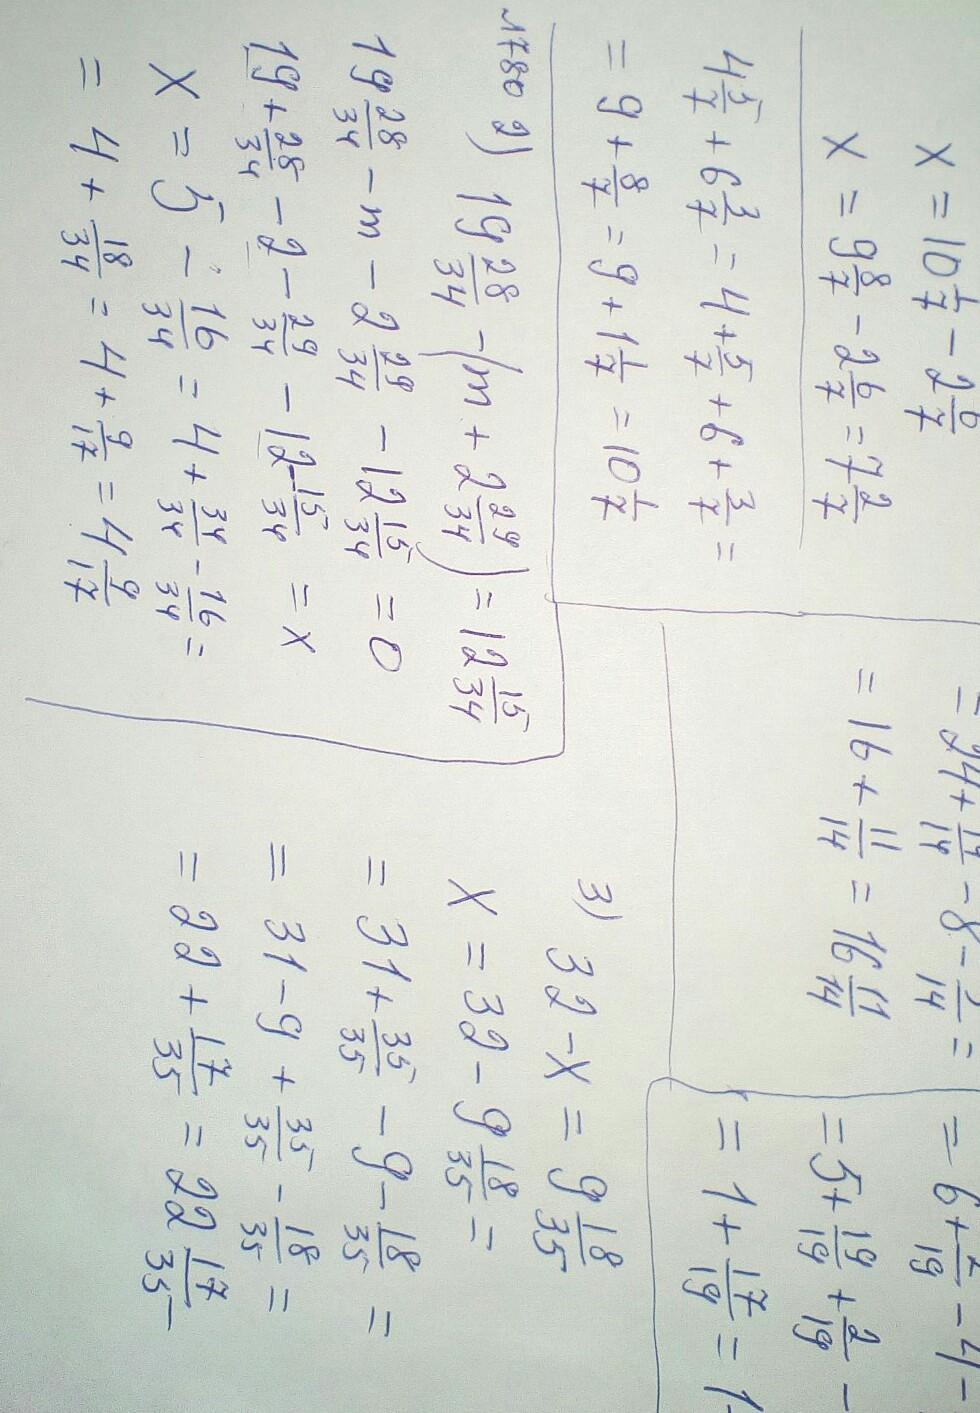 x = 10 1/7 - 2 6/7
x = 9 8/7 - 2 6/7 = 7 2/7
4 5/7 + 6 3/7 = 4 + 5/7 + 6 + 3/7 =
= 9 + 8/7 = 9 + 1 1/7 = 10 1/7
№780 2) 19 28/34 - (m + 2 29/34) = 12 15/34
19 28/34 - m - 2 29/34 - 12 15/34 = 0
19 + 28/34 - 2 - 29/34 - 12 - 15/34 = x
x = 5 - 16/34 = 4 + 34/34 - 16/34 =
= 4 + 18/34 = 4 + 9/17 = 4 9/17
= 24 + 14/14 - 8 - 3/14 =
= 16 + 11/14 = 16 11/14
3) 32 - x = 9 18/35
x = 32 - 9 18/35 =
= 31 + 35/35 - 9 - 18/35 =
= 31 - 9 + 35/35 - 18/35 =
= 22 + 17/35 = 22 17/35
= 6 + 2/19 - 4 -
= 5 + 19/19 + 2/19 -
= 1 + 17/19 = 1